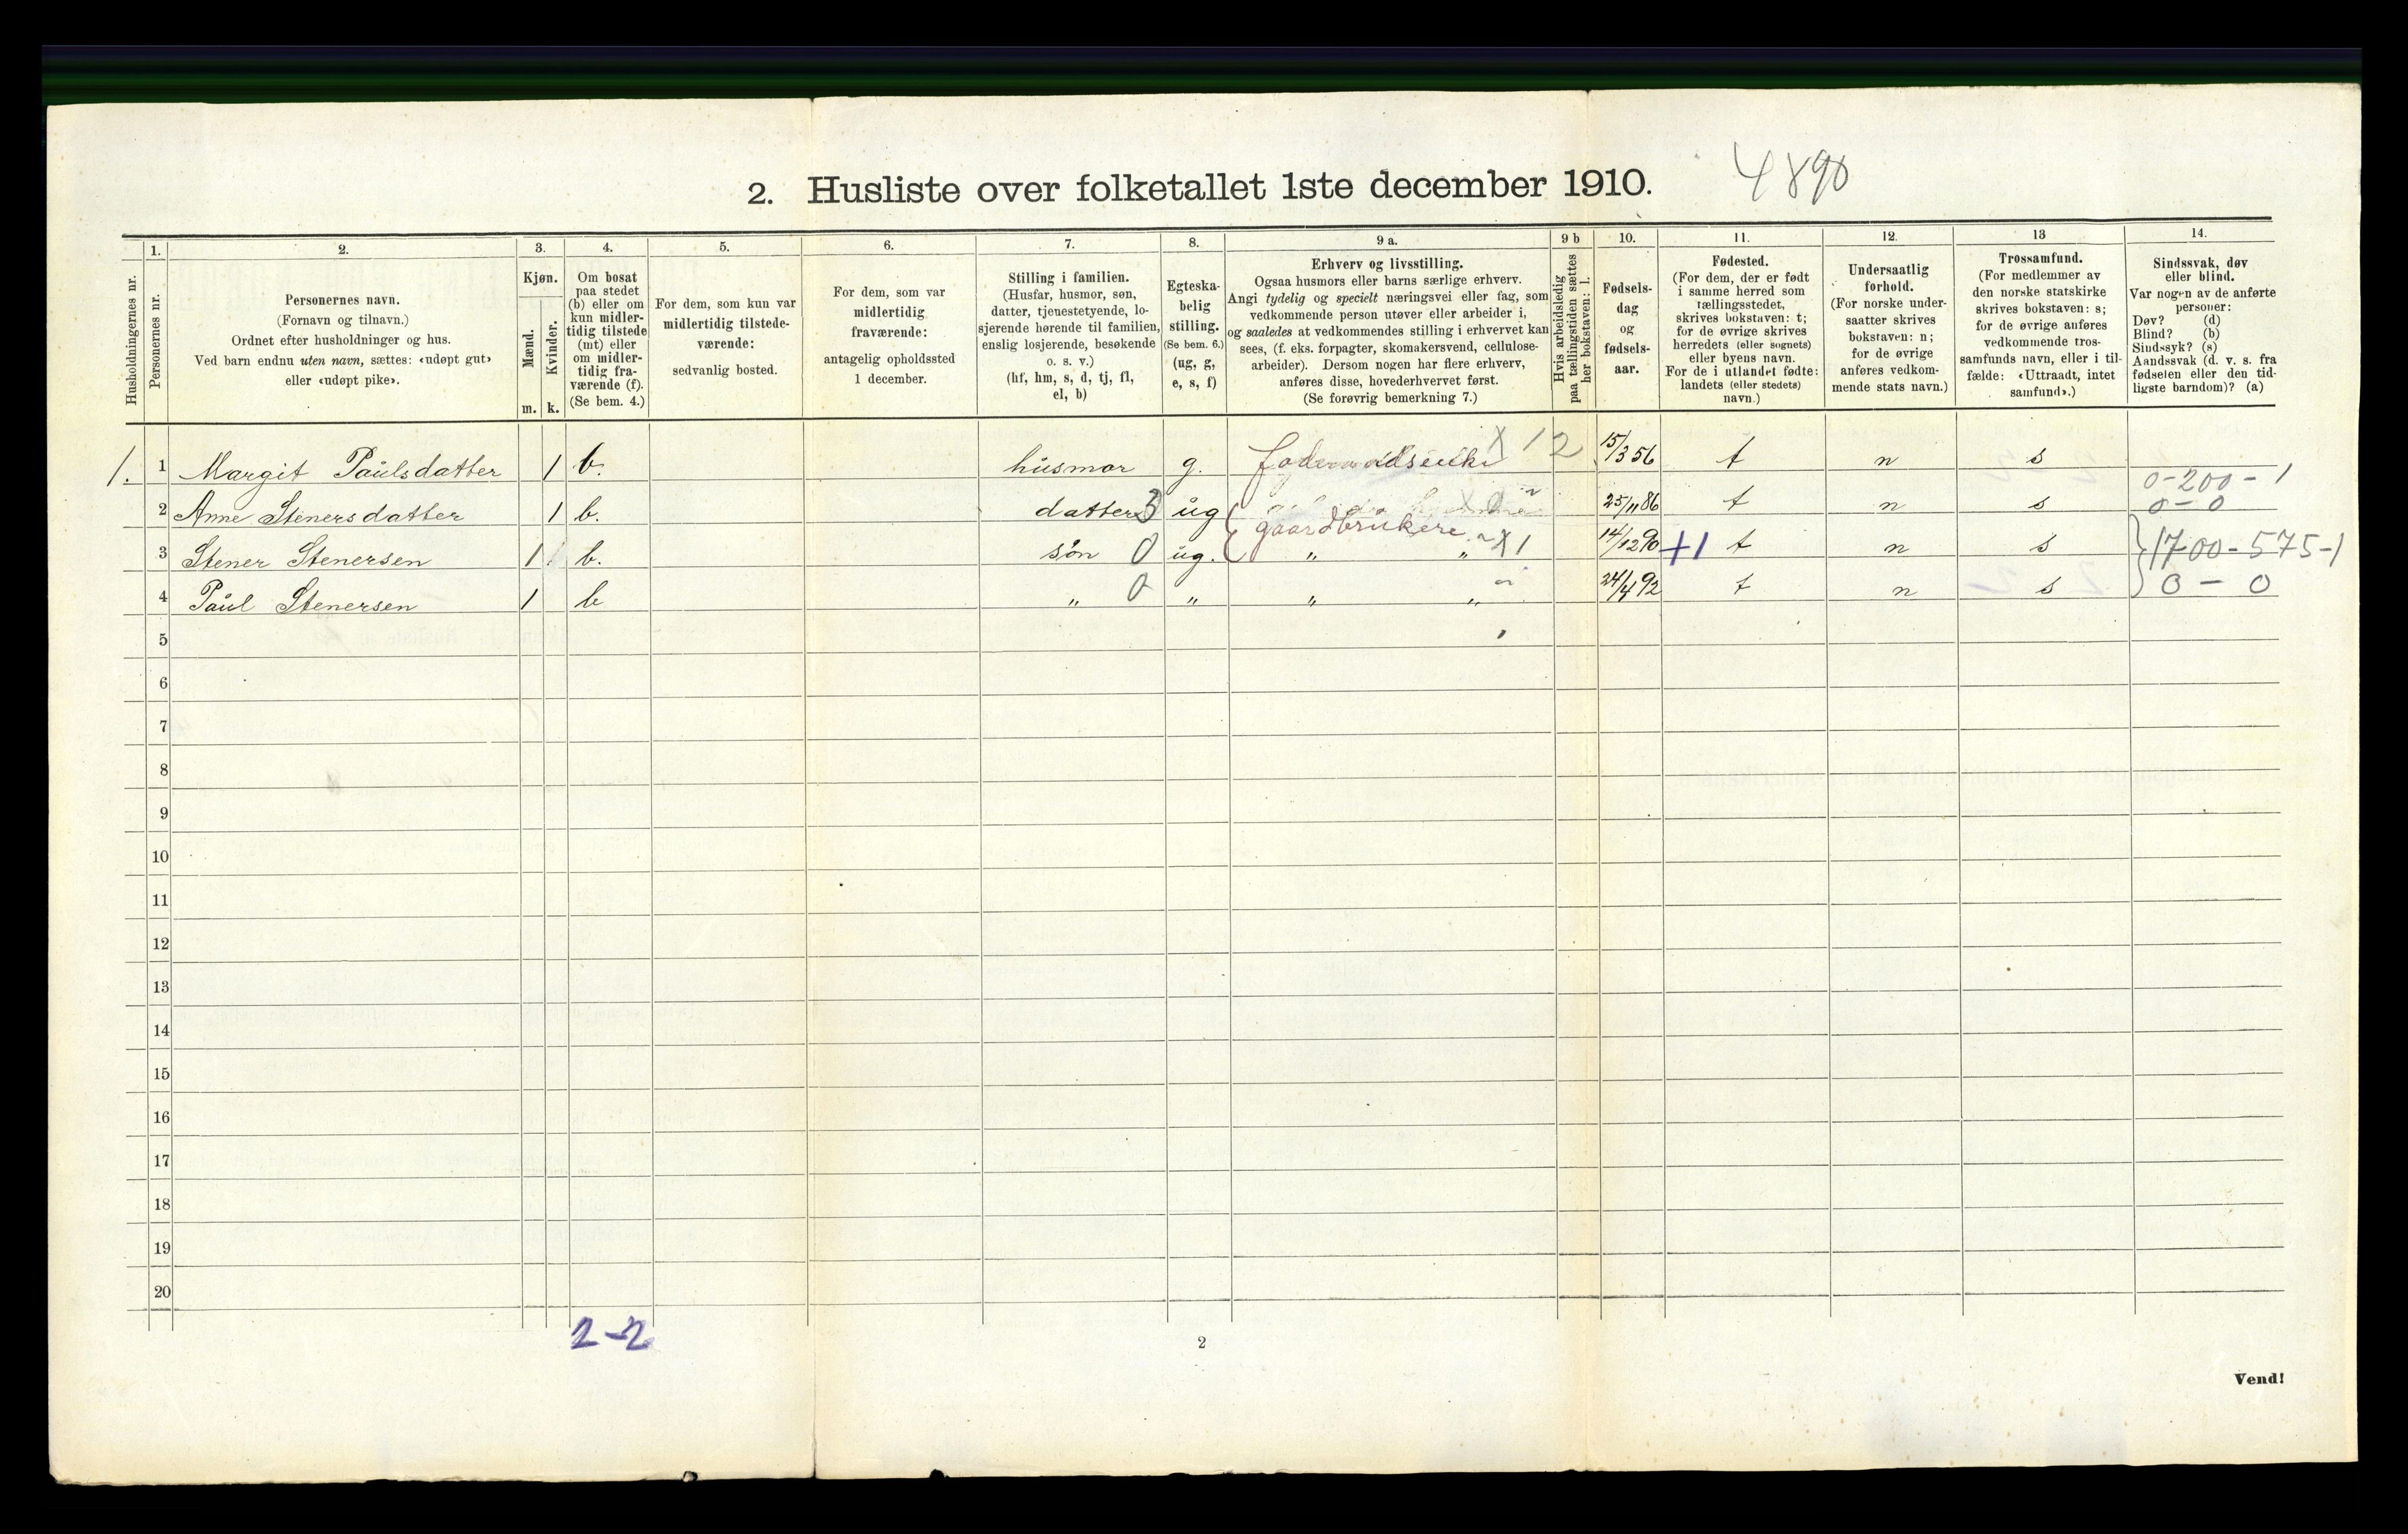 2. Husliste over folketallet 1ste december 1910. 4890
Husholdningernes nr.
1.
Personernes nr.
2.
Personernes navn.
(Fornavn og tilnavn.)
Ordnet efter husholdninger og hus.
Ved barn endnu uten navn, sættes: «udøpt gut»
eller «udøpt pike».
3.
Kjøn.
Mænd.
Kvinder.
m. k.
4.
Om bosat
paa stedet
(b) eller om
kun midler-
tidig tilstede
(mt) eller
om midler-
tidig fra-
værende (f).
(Se bem. 4.)
5.
For dem, som kun var
midlertidig tilstede-
værende:
sedvanlig bosted.
6.
For dem, som var
midlertidig
fraværende:
antagelig opholdssted
1 december.
7.
Stilling i familien.
(Husfar, husmor, søn,
datter, tjenestetyende, lo-
sjerende hørende til familien,
enslig losjerende, besøkende
o. s. v.)
(hf, hm, s, d, tj, fl,
el, b)
8.
Egteska-
belig
stilling.
(Se bem. 6.)
(ug, g,
e, s, f)
9 a.
Erhverv og livsstilling.
Ogsaa husmors eller barns særlige erhverv.
Angi tydelig og specielt næringsvei eller fag, som
vedkommende person utøver eller arbeider i,
og saaledes at vedkommendes stilling i erhvervet kan
sees, (f. eks. forpagter, skomakersvend, cellulose-
arbeider). Dersom nogen har flere erhverv,
anføres disse, hovederhvervet først.
(Se forøvrig bemerkning 7.)
9 b
Hvis arbeidsledig
paa tællingstiden sættes
her bokstaven: l.
10.
Fødsels-
dag
og
fødsels-
aar.
11.
Fødested.
(For dem, der er født
i samme herred som
tællingsstedet,
skrives bokstaven: t;
for de øvrige skrives
herredets (eller sognets)
eller byens navn.
For de i utlandet fødte:
landets (eller stedets)
navn.)
12.
Undersaatlig
forhold.
(For norske under-
saatter skrives
bokstaven: n;
for de øvrige
anføres vedkom-
mende stats navn.)
13
Trossamfund.
(For medlemmer av
den norske statskirke
skrives bokstaven: s;
for de øvrige anføres
vedkommende tros-
samfunds navn, eller i til-
fælde: «Uttraadt, intet
samfund».)
14.
Sindssvak, døv
eller blind.
Var nogen av de anførte
personer:
Døv? (d)
Blind? (b)
Sindssyk? (s)
Aandssvak (d. v. s. fra
fødselen eller den tid-
ligste barndom)? (a)
1. 1 Margit Paulsdatter 1 b. husmor g. X 12 15/3 56 t n s
0-200-1
2 Anne Stenersdatter 1 b. datter 3 ug 25/11 86 t n s 0-0
gaardbrukere
3 Stener Stenersen 1 b. søn 0 ug. " " X1 14/12 90 +1 t n s 1700-575-1
4 Paul Stenersen 1 b " 0 " " " 24/4 92 t n s 0-0
5
6
7
8
9
10
11
12
13
14
15
16
17
18
19
20
2-2
2
Vend!